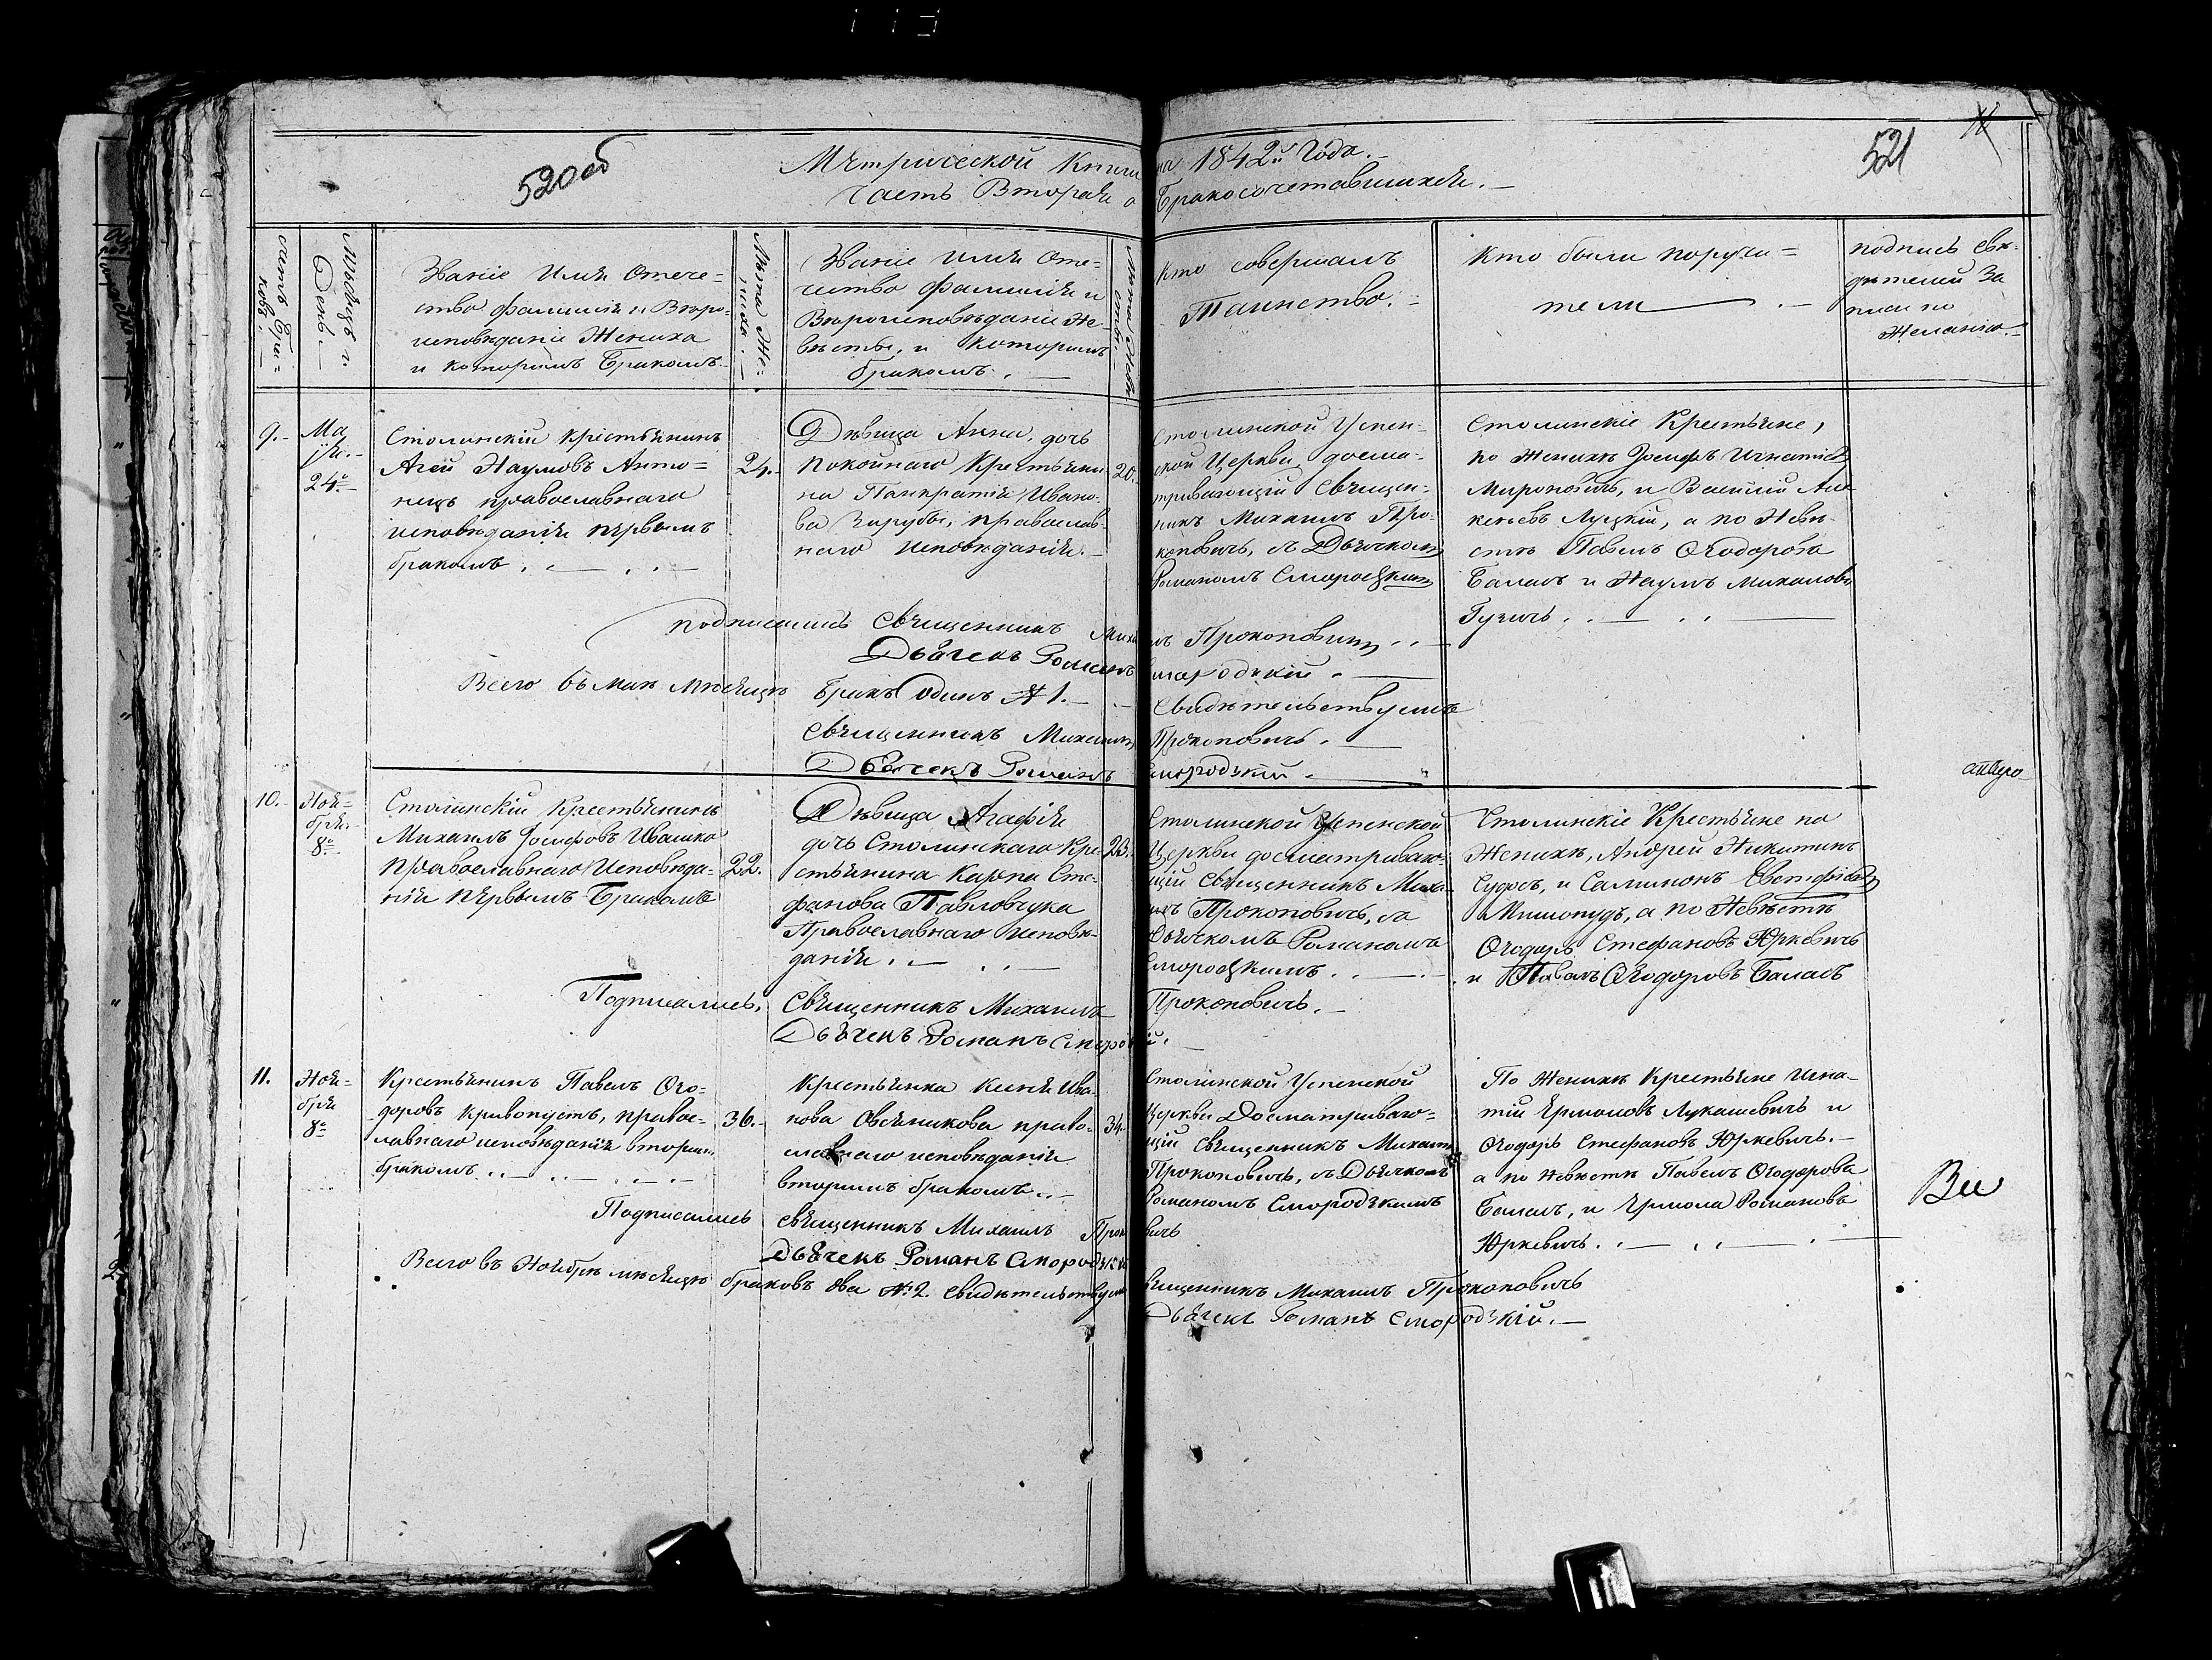 520 об
521
Метрической Книги на 1842й Года.
Часть Вторая о Бракосочетавшихся.
Счетъ Бра=
ковъ.
Мѣсяцъ и
День.
Званіе Имя Отече=
ство фамилія и Вѣро=
исповѣданіе Жениха
и которымъ Бракомъ.
Лѣта Же=
ниха.
Званіе Имя Оте=
чество фамилія и
Вѣроисповѣданіе Не=
вѣсты, и которымъ
бракомъ.
Лѣта Невѣ
сты.
Кто совершалъ
Таинство.
Кто были поручи=
тели
подпись сви=
дѣтелей За
писи по
Желанію.
9.
Ма
ія.
24.
Столинскій Крестьянинъ
Агей Наумовъ Анто=
нецъ православнаго
исповѣданія первымъ
бракомъ.
24.
Дѣвица Анна, дочь
покойнаго Крестьяни
на Панкратія Ивано=
ва Зарубы, православ=
наго исповѣданія.
20.
Столинской Успен=
ской Церкви досма=
тривающій Священ=
никъ Михаилъ Про=
коповичъ, съ Дьячкомъ
Романомъ Смородзкимъ
Столинскіе Крестьяне,
по Женихѣ Іосифъ Игнатіевъ
Мироновичъ, и Василій Але
ксѣевъ Луцкій, а по Невѣ=
стѣ Павелъ Ѳеодоровъ
Баланъ и Наумъ Михаловъ
Гузичъ.
подписались Священникъ Михаилъ Прокоповичъ
Дьячекъ Романъ Смородзкій.
Всего въ маѣ мѣсяцѣ бракъ одинъ № 1. Свидѣтельствуемъ
Священникъ Михаилъ Прокоповичъ.
Дьячекъ Романъ Смородзкій.
10.
Ноя=
бря.
8.
Столинскій Крестьянинъ
Михаилъ Іосифовъ Ивашко
Православнаго Исповѣда=
нія первымъ Бракомъ
22.
Дѣвица Агафія
дочь Столинскаго Кре
стьянина Карпа Сте=
фанова Павловчука
Православнаго исповѣ=
данія.
23.
Столинской Успенской
Церкви досматриваю=
щій Священникъ Миха
илъ Прокоповичъ, съ
Дьячкомъ Романомъ
Смородзкимъ.
Столинскіе Крестьяне по
Женихѣ, Андрей Никитинъ
и Самсонъ
а по Невѣстѣ
Ѳеодоръ Стефановъ Юркевичъ
и Павелъ Ѳеодоровъ Баланъ
Подписались, Священникъ Михаилъ Прокоповичъ.
Дьячекъ Романъ Смородзкій.
11.
Ноя=
бря
8
Крестьянинъ Павелъ Ѳео=
доровъ Кривопустъ, правос=
лавнаго исповѣданія вторымъ
бракомъ.
36.
Крестьянка Ксенія Ива
нова Овсяникова право=
славнаго исповѣданія
вторымъ бракомъ.
34.
Столинской Успенской
Церкви Досматриваю=
щій Священникъ Михаилъ
Прокоповичъ, съ Дьячкомъ
Романомъ Смородзкимъ
По Женихѣ Крестьяне Игна=
тій Ермоловъ Лукашевичъ и
Ѳеодоръ Стефановъ Юркевичъ.
а по невѣстѣ Павелъ Ѳеодоровъ
Баланъ, и Ермола Романовъ
Юркевичъ.
Подписались Священникъ Михаилъ Прокоповичъ
Дьячекъ Романъ Смородзкій
Всего въ Ноябрѣ мѣсяцѣ браковъ два № 2. Свидѣтельствуемъ Священникъ Михаилъ Прокоповичъ
Дьячекъ Романъ Смородзкій.